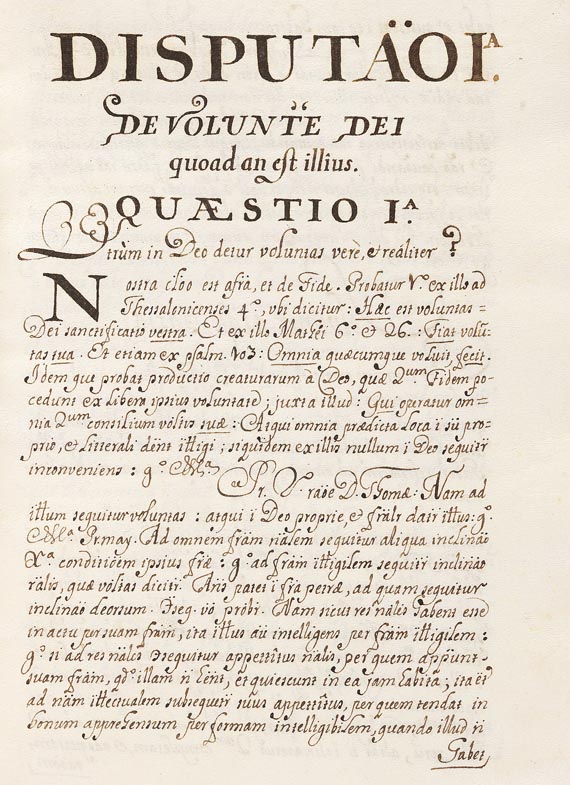 DISPUTÃOI.ᴬ
DE VOLUNTẼ DEI
quoad an est illius.
QUÆSTIO I.ᴬ
Utrùm in Deo detur voluntas verè, et reáliter?
Nostra clõo est afrã, et de Fide. Probatur V.ᵉ ex illo ad
Thessalonicenses 4.º, ubi dicitur: Hæc est voluntas=
Dei sanctificatio vestra. Et ex illo Matthei 6.º et 26: Fiat volũ-
tas tua. Et etiam ex psalm. 103: Omnia quæcumque voluit, fecit.
Idem que probat productio creaturarum à Deo, quæ 2ᵘᵐ Fidem po-
cedunt ex libera ipsius voluntate; juxta illud: Qui operatur om-
nia 2ᵘᵐ consilium võltis suæ: Atqui omnia prædicta loca ĩ sũ pro-
prio, et Litterali dẽnt itlligi; siquidem ex illis nullum ĩ Deo sequitr
inconveniens: g.º
Pr. V. raõe D. Thomæ. Nam ad
itllum sequitur voluntas: atqui ĩ Deo proprie, et frãlr datr itllus: g.º
Pr. may. Ad omnem frãm rialem sequitur aliqua inclinão
xᵃ conditiõem ipsius frãe: g.º ad frãm itlligilem sequitr inclinão
rãlis, quæ võltas dicitr. Añs patet ĩ frã petræ, ad quam sequitur
inclinão deorsum. Õseq. vò probr. Nam sicut res nãles habent esse
in actu per suam frãm, ita itllus ãu intelligens per frãm itlligilem:
g.º si ad res nãles õsequitur appetitus nãlis, per quem appũnt
suam frãm, qd.º illam ñ hent, et quiescunt in ea jam habita; ita et
ad nãm itllectualem subsequetr suus appetitus, per quem tendat in
bonum apprehensum per formam intelligibilem, quando illud ñ
habet,